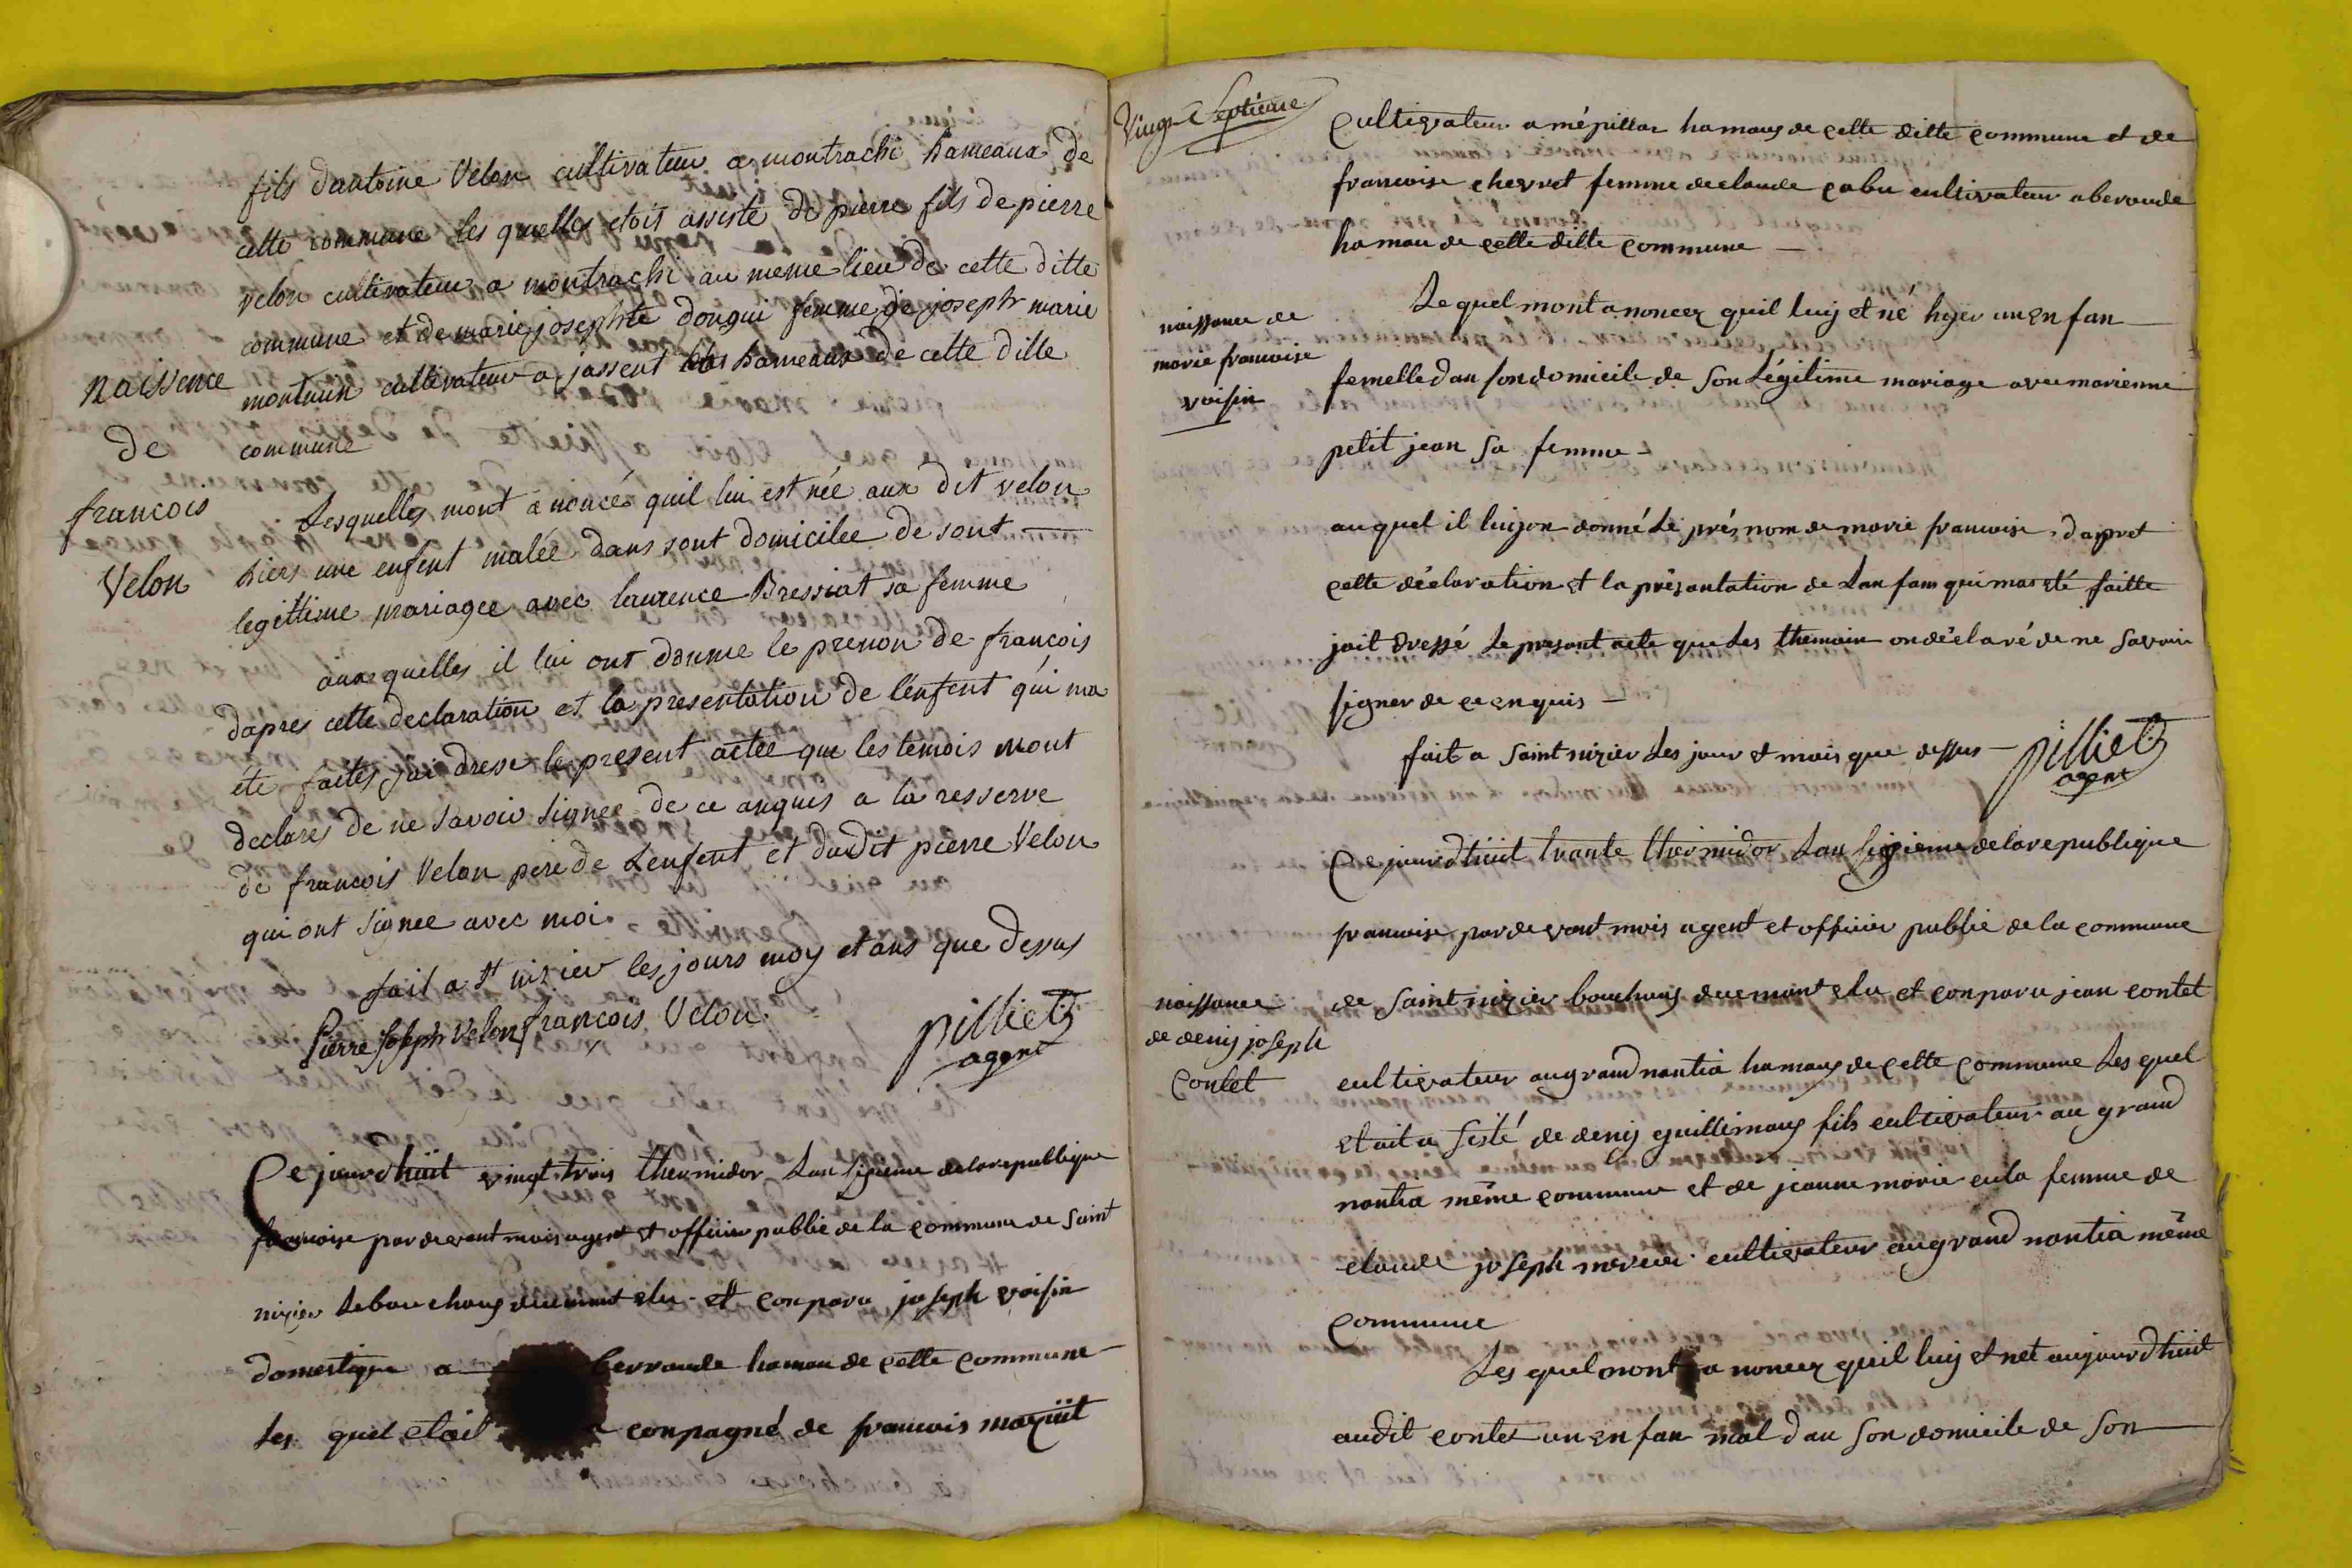 fils dantoine Velon cultivateur a montrachi hameaux de
cette commune les quelles etois assiste de pierre fils de pierre
velon cultivateur a montrachi au meme lieu de cette ditte
commune et de marie josephte dongui femme de joseph marie
cultivateur a jassent hameaux de cette ditte
commune
Naissence
de
francois
Velon
Lesquelles mont anoncé quil lui est née aux dit velon
hiers une enfent malée dans sont domicilee de sont
legittime mariagee avec laurence Bressiat sa femme
aux quelles il lui ont donme le prenon de francois
dapres cette declaration et la presentation de lenfent qui ma
éte faites jai dresse le present actee que les temois mont
declares de ne savoir signee de ce anques a la resserve
de francois Velon pere de Lenfent et dudit pierre Velon
qui ont signee avec moi
fait a st nizier les jours moy et ans que dessus
Pierre Joseph Velon francois Velon
pilliet
agent
Ce jourdhüit vingt trois thermidor Lan sizieme de la republique
francoise par devant mois agent et officier publie de la commune de saint
nizier Lebouchoug duemant elu et conparu joseph voisin
domestique a berroude hamau de cette commune
Les quel etoit conpagné de francois mazüit
Vingt Septieme
Cultivateur a mépillar hamaux de cette ditte commune et de
francoise chevret femme de claude cabu cultivateur a beroude
hamau de cette ditte commune
naissance de
marie francoise
voisin
Le quel mont anoncez quil luy et né hyer un en fan
femelle dan son domicile de son Légitime mariage avec marienne
petit jean sa femme
au quel il luy on donné Le prés nom de marie francoise dapret
cette déclaration et la présantation de Lan fan qui mas eté faitte
jait dressé Le presant acte que Les themoin on déclaré de ne savoir
signer de ce enquis
fait a saint nizier Les jour et mois que dessus
pilliet
agent
Ce jourdhüit trante thermidor Lan sizieme de la republique
francoise par devant mois agent et officier publie de la commune
de saint nizier bouchoux duemant elu et conparu jean contet
naissance
de denij joseph
Contet
cultivateur au grand nantia hamaux de cette commune Les quel
etait a sisté de denij guillimaux fils cultivateur au grand
nantia même commune et de jeanne marie cula femme de
claude joseph cultivateur au grand nantia même
commune
Les quel mont a noncez quil luy et net aujourdhüit
audit contet un en fan mal dan son domicile de son